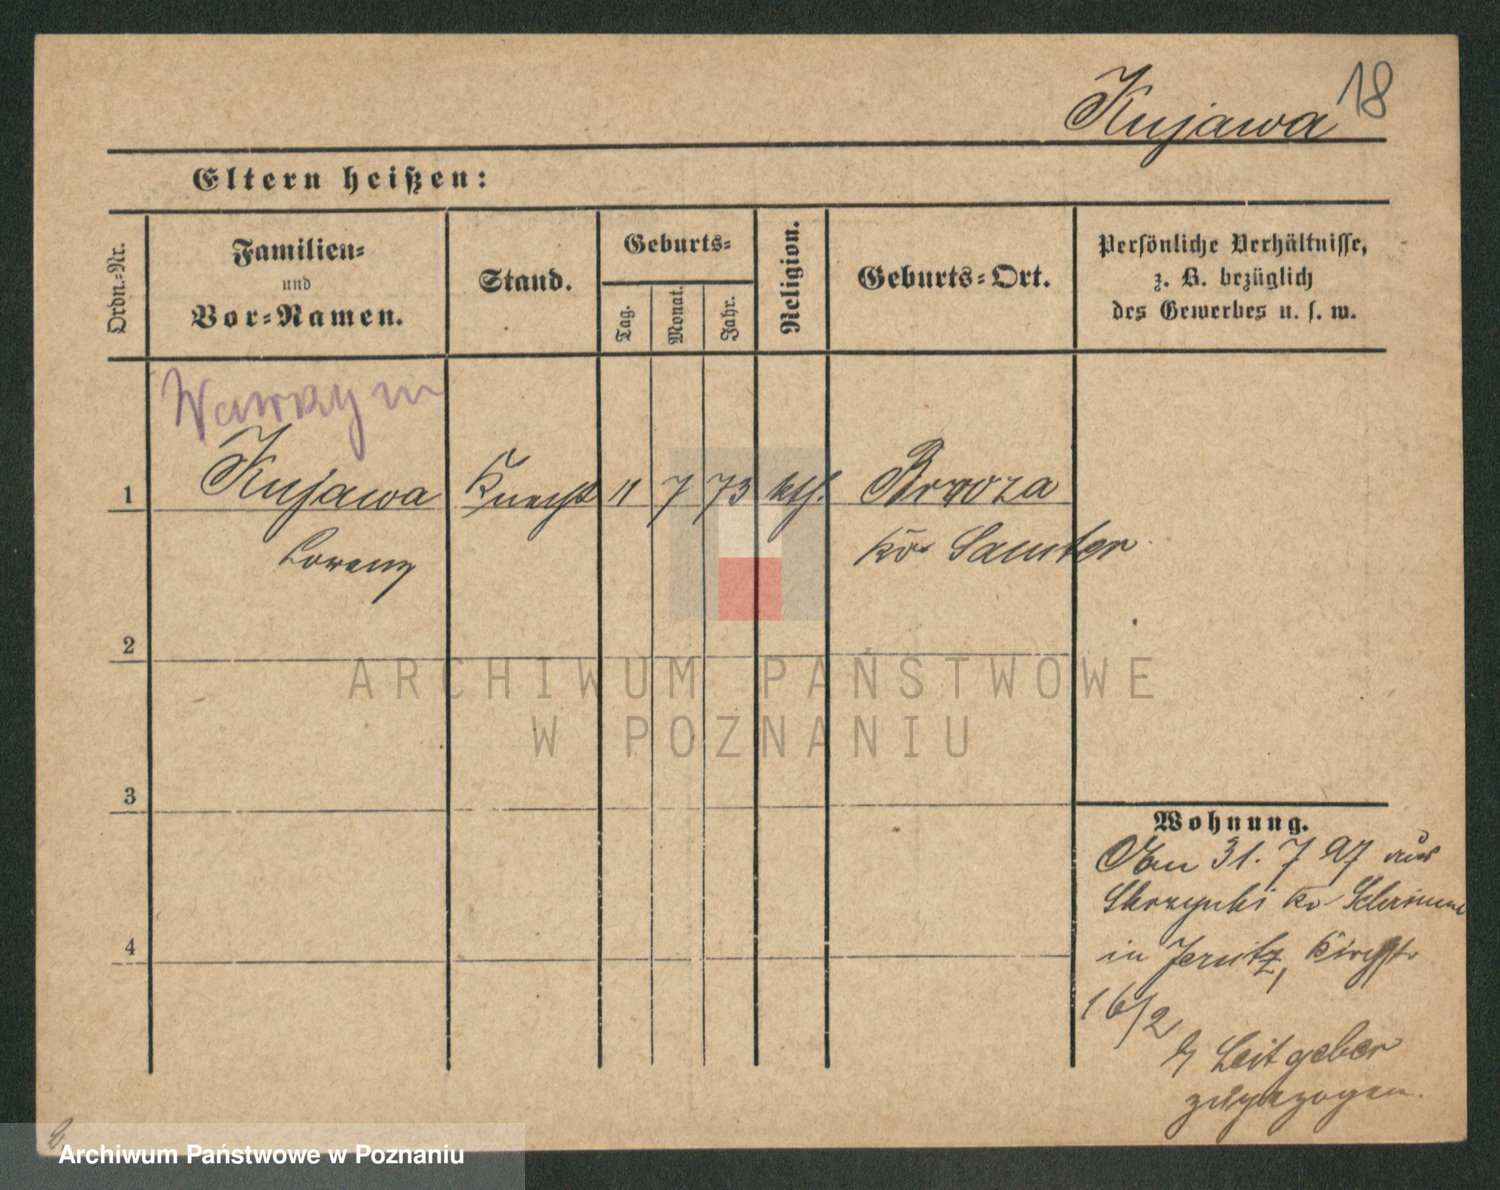 18
Kujawa
Eltern heißen:
Ordn.-Nr.
Familien-
und
Vor-Namen.
Stand.
Geburts-
Tag.
Monat.
Jahr.
Religion.
Geburts-Ort.
Persönliche Verhältnisse,
z. B. bezüglich
des Gewerbes u. s. w.
Wawrzyn
1 Kujawa Knecht 11 7 73 kth.
Lorenz
Samter
2
ARCHIWUM PAŃSTWOWE
W POZNANIU
3
Wohnung.
Am 31. 7 97 aus
4
in Jersitz,
16/2
b/ Leitgeber
zugezogen.
Archiwum Państwowe w Poznaniu